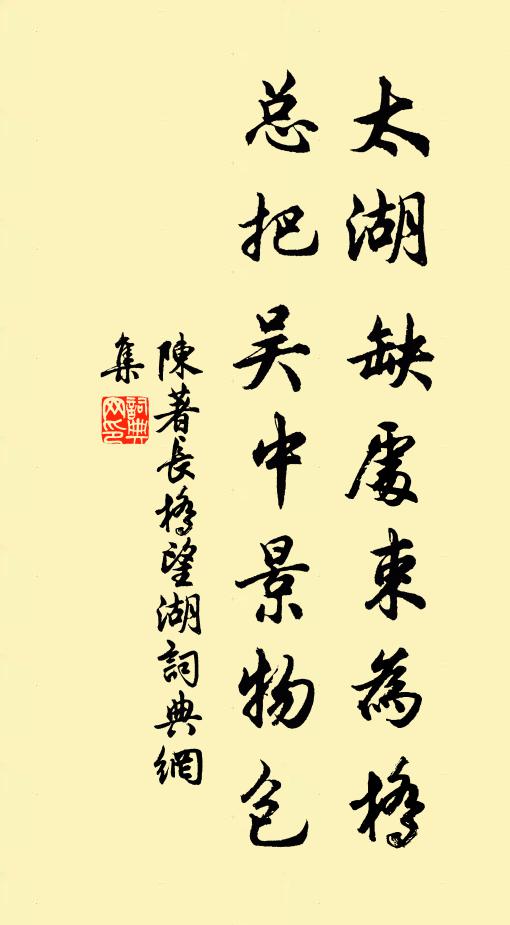 太湖缺處束為橋
总把吴中景物包
陳著長橋望湖詞典網
集
詞典網印